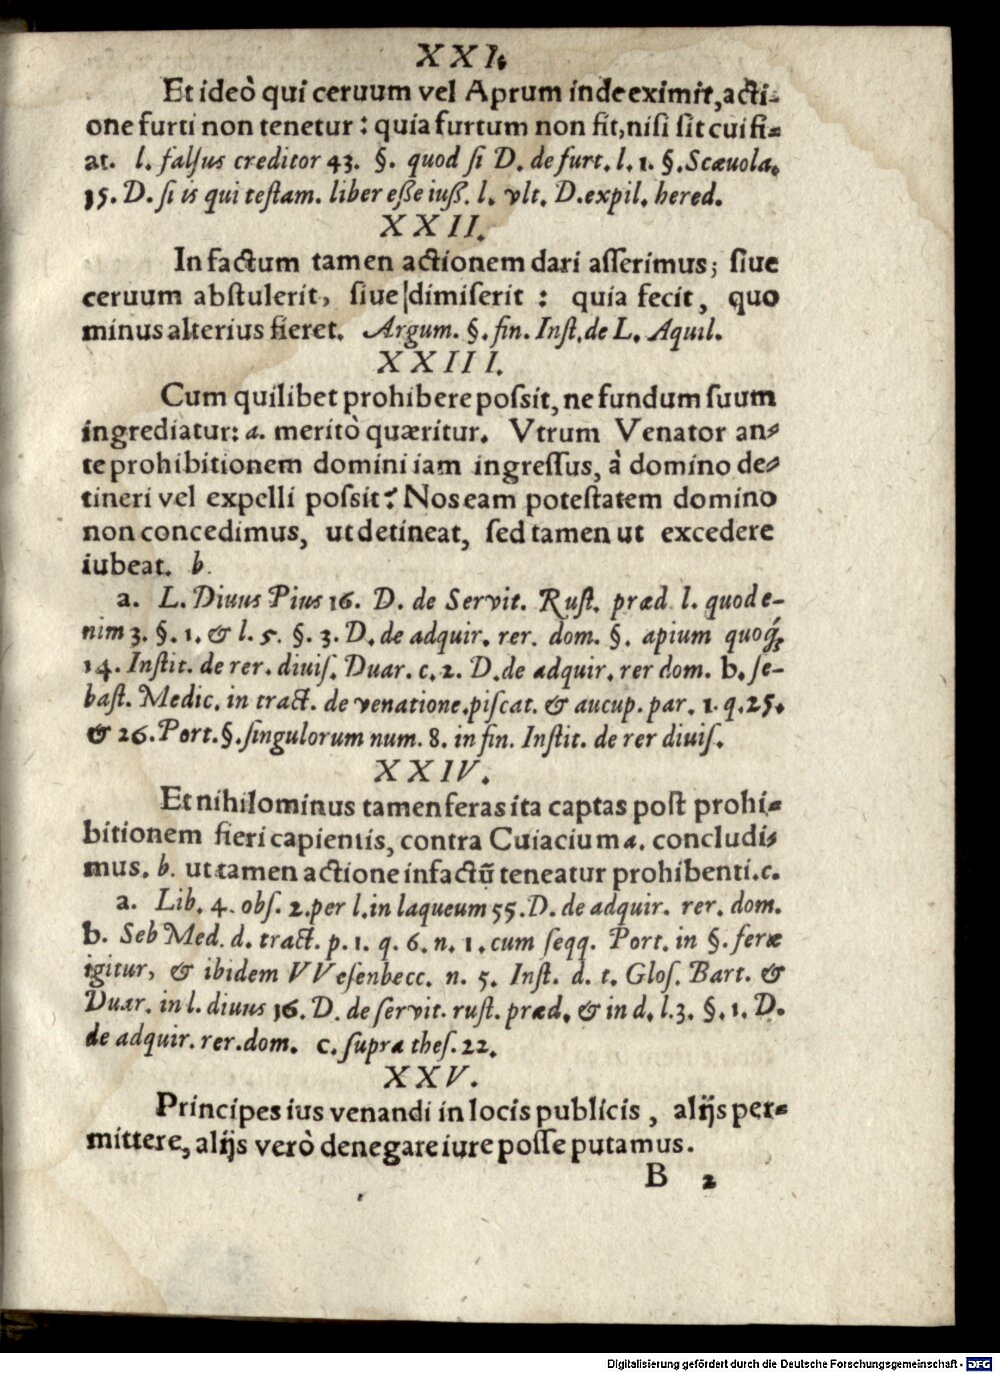 XXI.
Et ideò qui ceruum vel Aprum inde eximit, acti-
one furti non tenetur : quia furtum non fit, nisi sit cui fi-
at. l. falsus creditor 43. §. quod si D. de furt. l. 1. §. Scæuola.
15. D. si is qui testam. liber eße iuß. l. vlt. D. expil. hered.
XXII.
In factum tamen actionem dari asserimus; siue
ceruum abstulerit, siue dimiserit : quia fecit, quo
minus alterius fieret. Argum. §. fin. Inst. de L. Aquil.
XXIII.
Cum quilibet prohibere possit, ne fundum suum
ingrediatur: a. meritò quæritur. Vtrum Venator an-
te prohibitionem domini iam ingressus, à domino de-
tineri vel expelli possit? Nos eam potestatem domino
non concedimus, ut detineat, sed tamen ut excedere
iubeat. b.
a. L. Diuus Pius 16. D. de Servit. Rust. præd. l. quod e-
nim 3. §. 1. & l. 5. §. 3. D. de adquir. rer. dom. §. apium quoq́;
14. Instit. de rer. diuis. Duar. c. 2. D. de adquir. rer dom. b. se-
bast. Medic. in tract. de venatione. piscat. & aucup. par. 1. q. 25.
& 26. Port. §. singulorum num. 8. in fin. Instit. de rer diuis.
XXIV.
Et nihilominus tamen feras ita captas post prohi-
bitionem fieri capientis, contra Cuiacium a. concludi-
mus. b. ut tamen actione in factū teneatur prohibenti. c.
a. Lib. 4. obs. 2. per l. in laqueum 55. D. de adquir. rer. dom.
b. Seb Med. d. tract. p. 1. q. 6. n. 1. cum seqq. Port. in §. feræ
igitur, & ibidem VVesenbecc. n. 5. Inst. d. t. Glos. Bart. &
Duar. in l. diuus 16. D. de servit. rust. præd. & in d. l. 3. §. 1. D.
de adquir. rer. dom. c. supra thes. 22.
XXV.
Principes ius venandi in locis publicis, alijs per-
mittere, alijs verò denegare iure posse putamus.
B 2
Digitalisierung gefördert durch die Deutsche Forschungsgemeinschaft - DFG